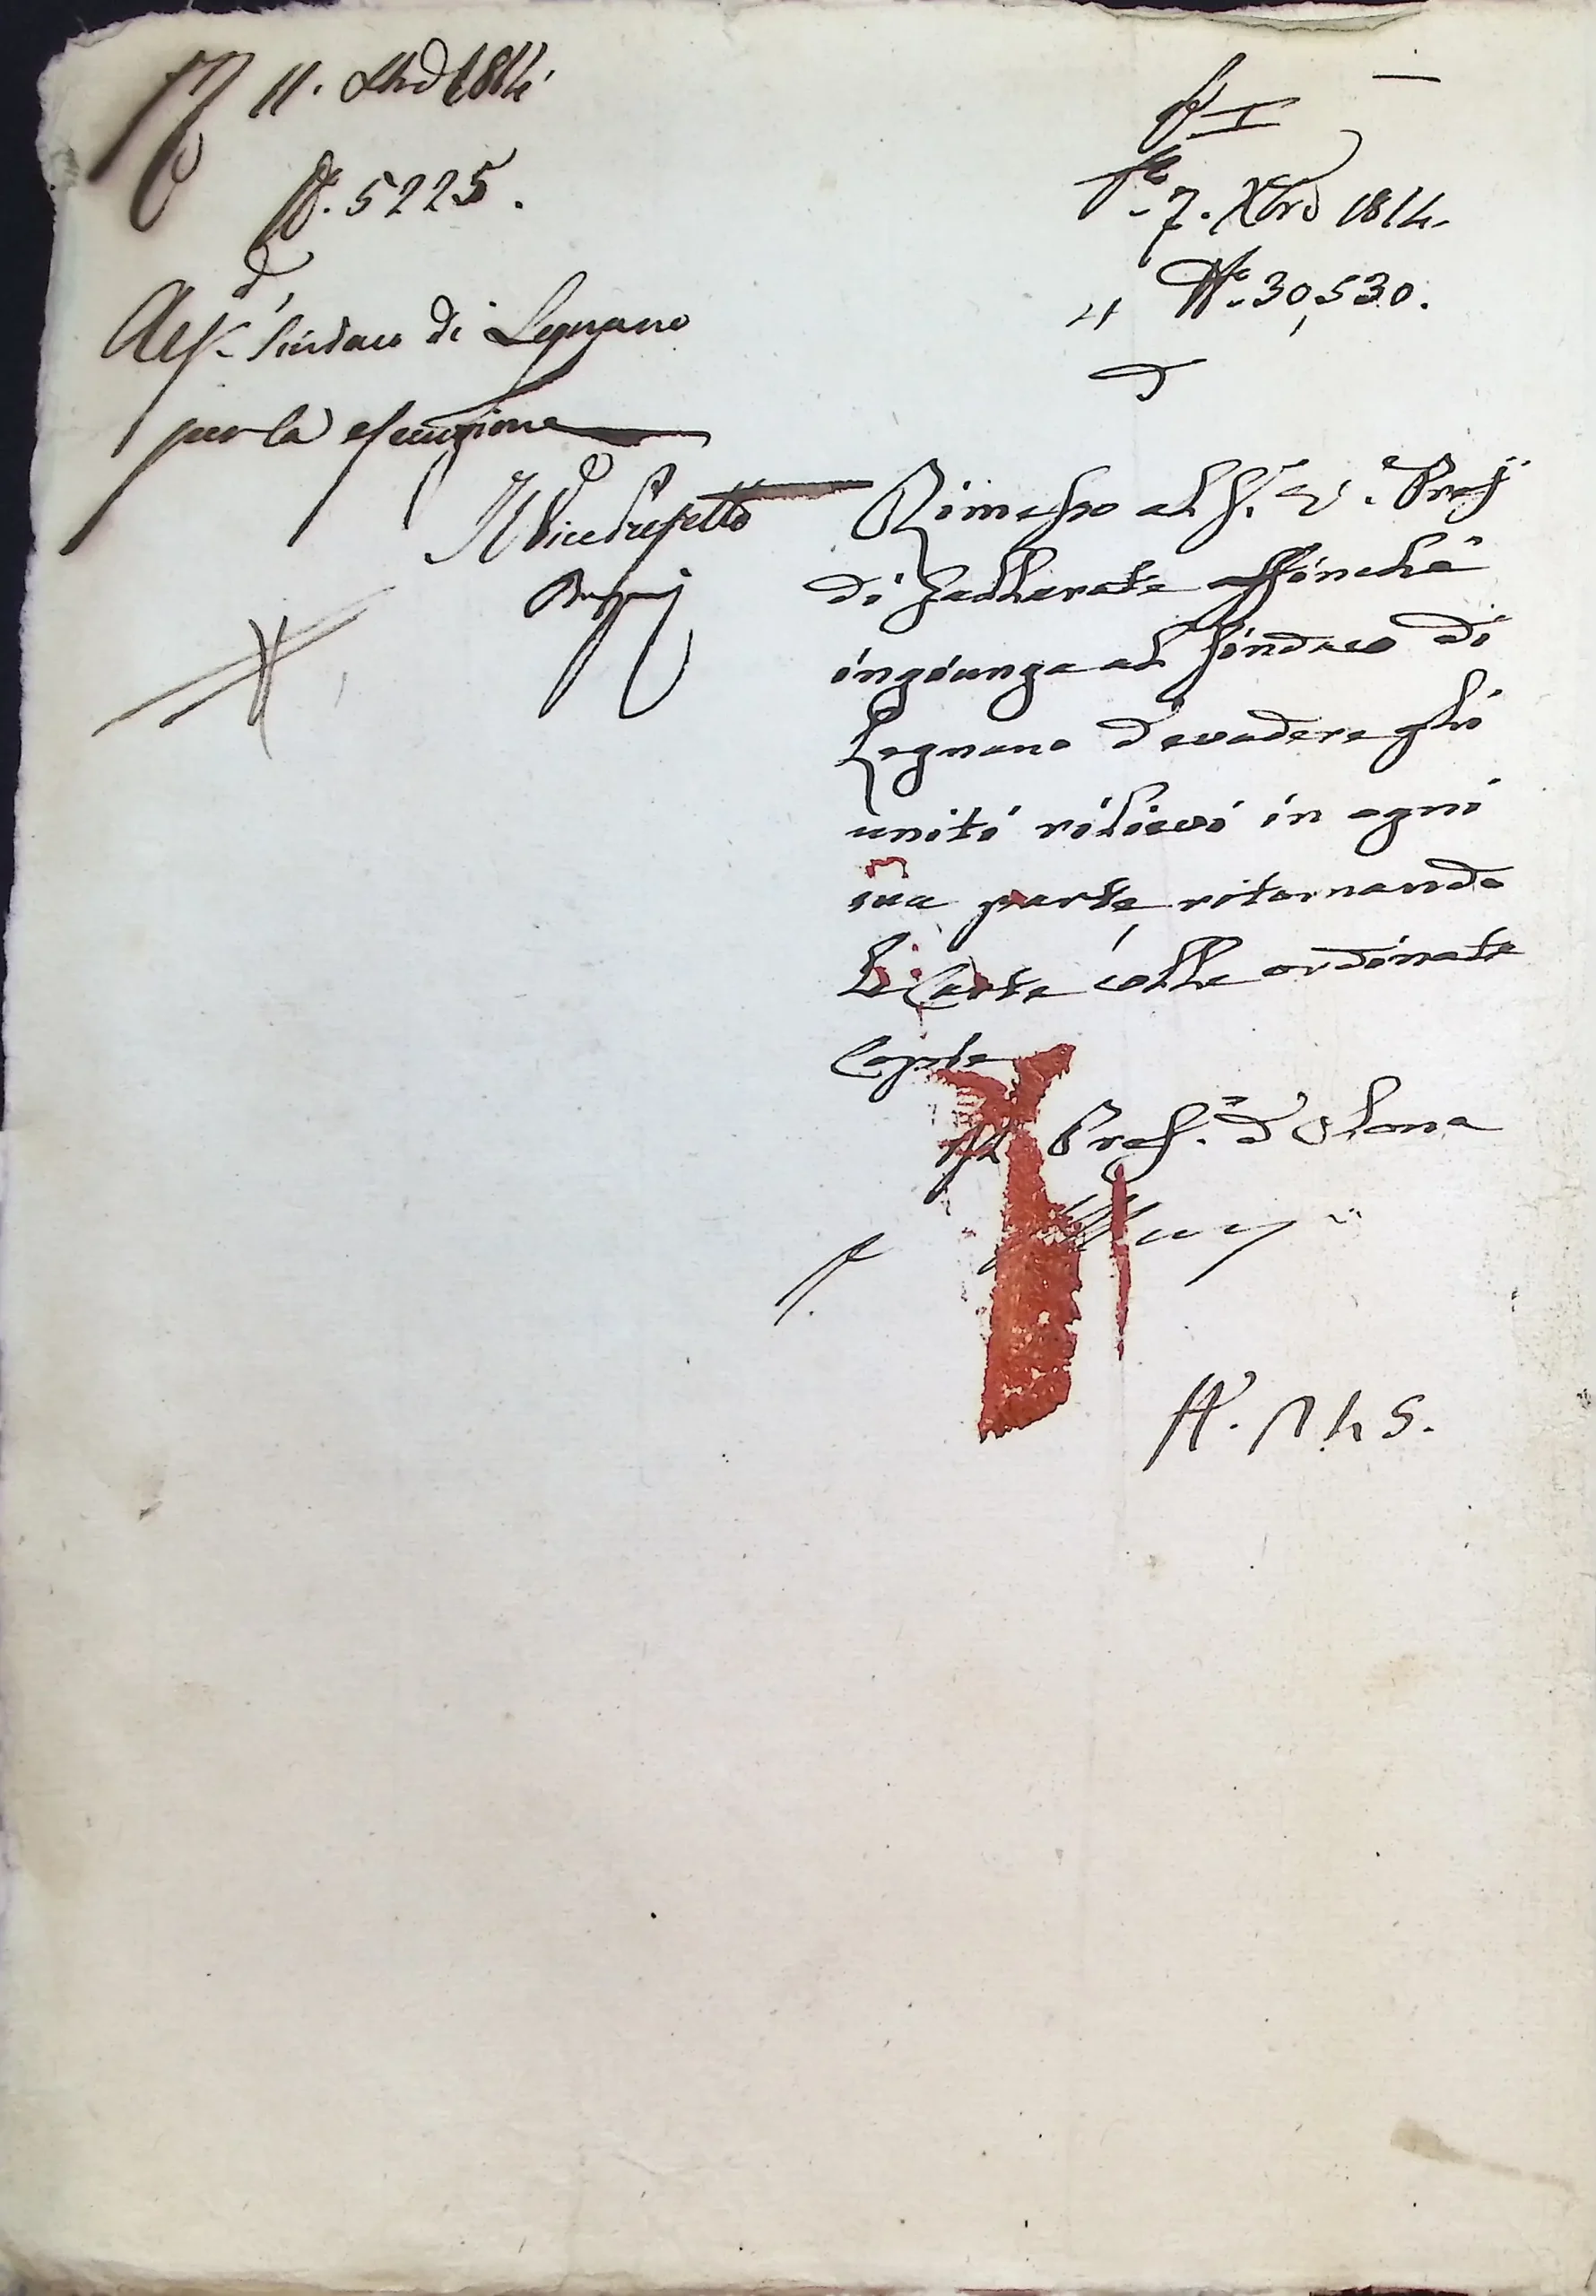 11. Xbre 1814
N. 5225.
Al Sr. Sindaco di Legnano
per la esecuzione
Il Viceprefetto
I
7. Xbre 1814.
N. 30,530.
Rimesso al Sr. V. Pref
di Gallarate affinchè
ingiunga al Sindaco di
Legnano d'evadere gli
uniti rilievi in ogni
sua parte, ritornando
le Carte colle ordinate
Copie
Il Pref. d'Olona